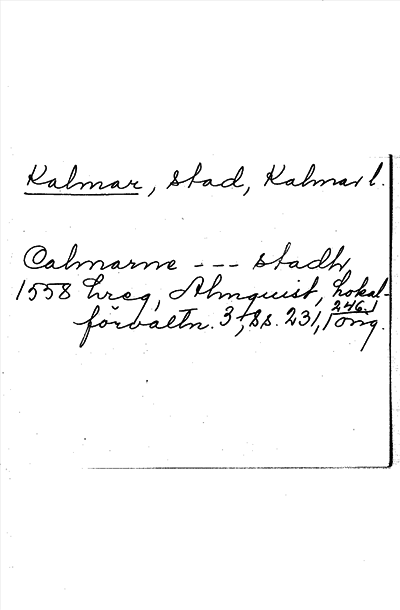 Kalmar, stad, Kalmar l.
Calmarne --- stadh
1558 Lreg, Almquist, Lokal-
förvaltn. 3, ss. 231, 246. omg.